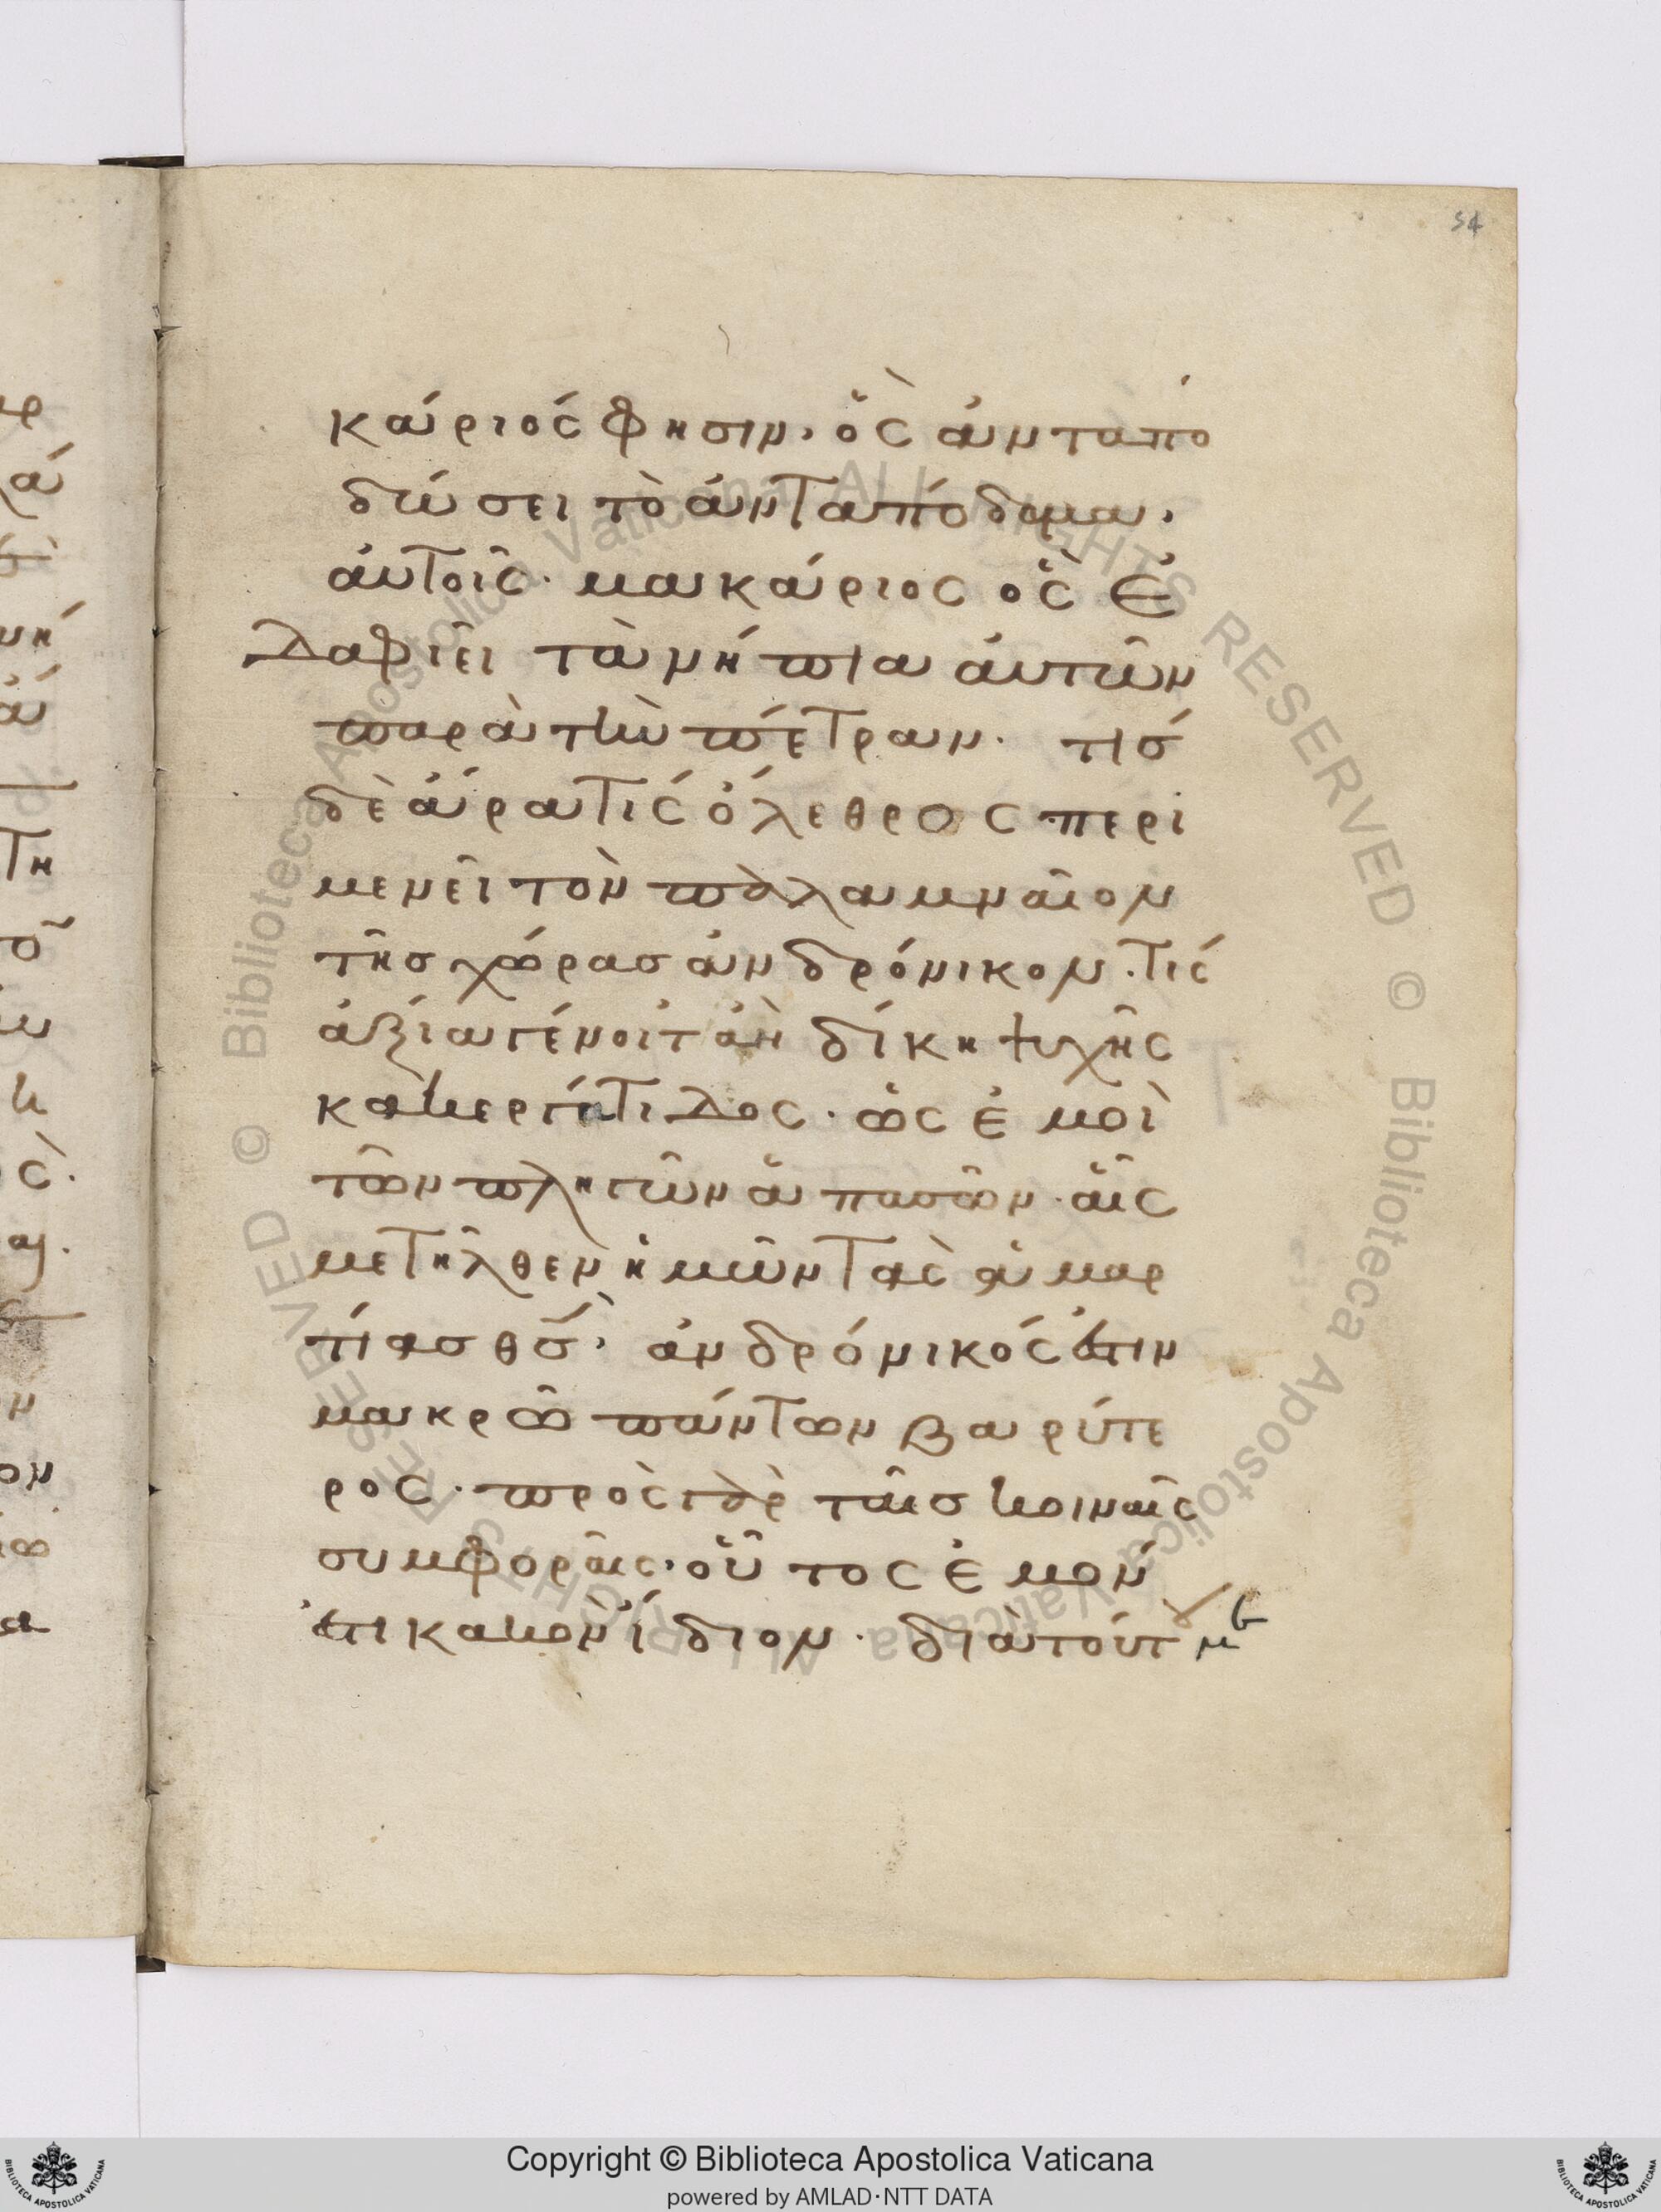 54
κάριός φησιν, ὃς ἀνταπο
δώσει τὸ ἀνταπόδομα,
αὐτοῖς· μακάριος ὃς ἐ
δαφιεῖ τὰ νήπια αὐτῶν
παρὰ τὴν πέτραν· τίσ
δὲ ἄρα τίς ὄλεθρος περι
μενεῖ τὸν παλαμναῖον
τῆσ χώρασ ἀνδρόνικον· τίς
ἀξία γένοιτ ἂν δίκη ψυχῆς
κακεργάτιδος· ὡς ἐμοὶ
τῶν πληγῶν ἁπασῶν· αἷς
μετῆλθεν ἡμῶν τὰς ἁμαρ
τίασ θσ̄, ἀνδρόνικός ἐστιν
μακρῶ πάντων βαρύτε
ρος· πρὸς γὰρ ταῖσ κοιναῖς
συμφοραῖς, οὗτος ἐμόν
ἐστι κακὸν ἴδιον· διὰ τούτ
Copyright © Biblioteca Apostolica Vaticana
powered by AMLAD·NTT DATA